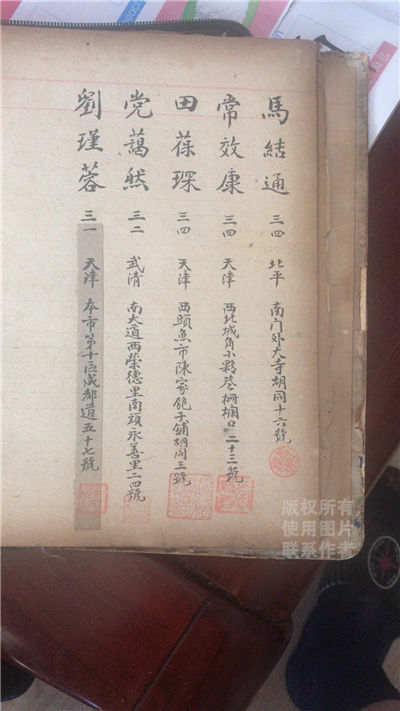 馬結通 三四 北平 南门外大寺胡同十六號
常效康 三四 天津 西北城角小夥巷柵欄口二十三號
田葆琛 三四 天津 西頭魚市陳家飽子舖胡同三號
党藹然 三二 武清 南大道西榮德里南頭永善里二四號
劉瑾蓉 三一 天津 本市第十區成都道五十七號
版权所有
使用图片
联系作者